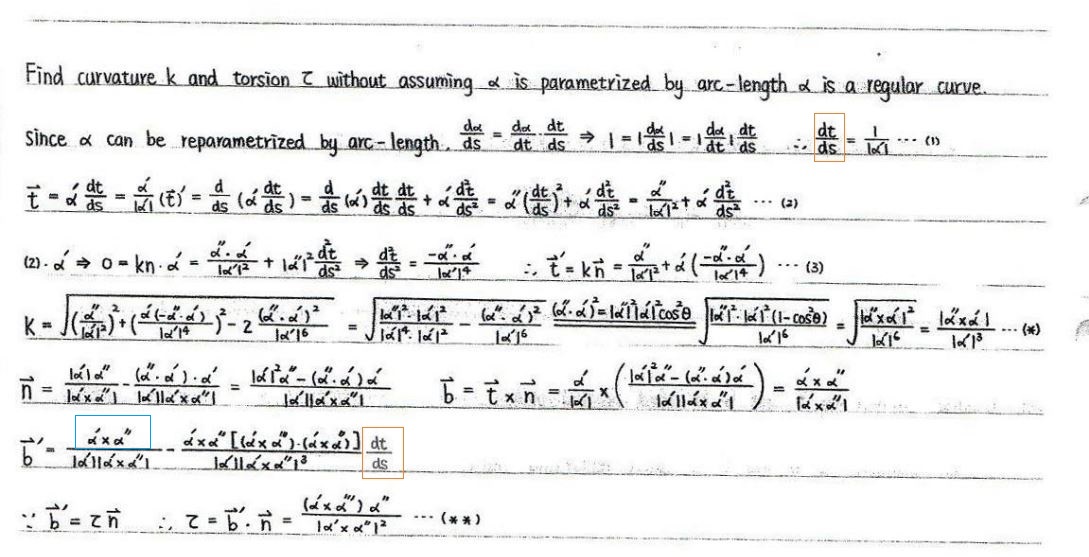 Find curvature k and torsion τ without assuming α is parametrized by arc-length α is a regular curve.
Since α can be reparametrized by arc-length. dα/ds = dα/dt · dt/ds ⇒ 1 = |dα/ds| = |dα/dt| dt/ds ∴ dt/ds = 1/|α'| ... (1)
t⃗ = α' dt/ds = α'/|α'| (t⃗)' = d/ds (α' dt/ds) = d/ds (α') dt/ds dt/ds + α' d²t/ds² = α'' (dt/ds)² + α' d²t/ds² = α''/|α'|² + α' d²t/ds² ... (2)
(2)·α' ⇒ 0 = kn·α' = α''·α'/|α'|² + |α'|² d²t/ds² ⇒ d²t/ds² = -α''·α'/|α'|⁴ ∴ t⃗' = kn⃗ = α''/|α'|² + α' (-α''·α'/|α'|⁴) ... (3)
K = √((α''/|α'|²)² + (α'(-α''·α')/|α'|⁴)² - 2 (α''·α')²/|α'|⁶) = √(|α''|²·|α'|²/|α'|⁴·|α'|² - (α''·α')²/|α'|⁶) (α''·α')² = |α''|²|α'|²cos²θ √(|α''|²·|α'|²(1-cos²θ)/|α'|⁶) = √(|α''×α'|²/|α'|⁶) = |α''×α'|/|α'|³ ... (*)
n⃗ = |α'|α''/|α'×α''| - (α''·α')·α'/|α'||α'×α''| = |α'|²α'' - (α''·α')α'/|α'||α'×α''| b⃗ = t⃗ × n⃗ = α'/|α'| × (|α'|²α'' - (α''·α')α'/|α'||α'×α''|) = α'×α''/|α'×α''|
b⃗' = α'×α''/|α'||α'×α''| - α'×α''[(α'×α'')·(α'×α'')]/|α'||α'×α''|³ dt/ds
∵ b⃗' = τn⃗ ∴ τ = b⃗'·n⃗ = (α'×α''')α''/|α'×α''|² ... (**)